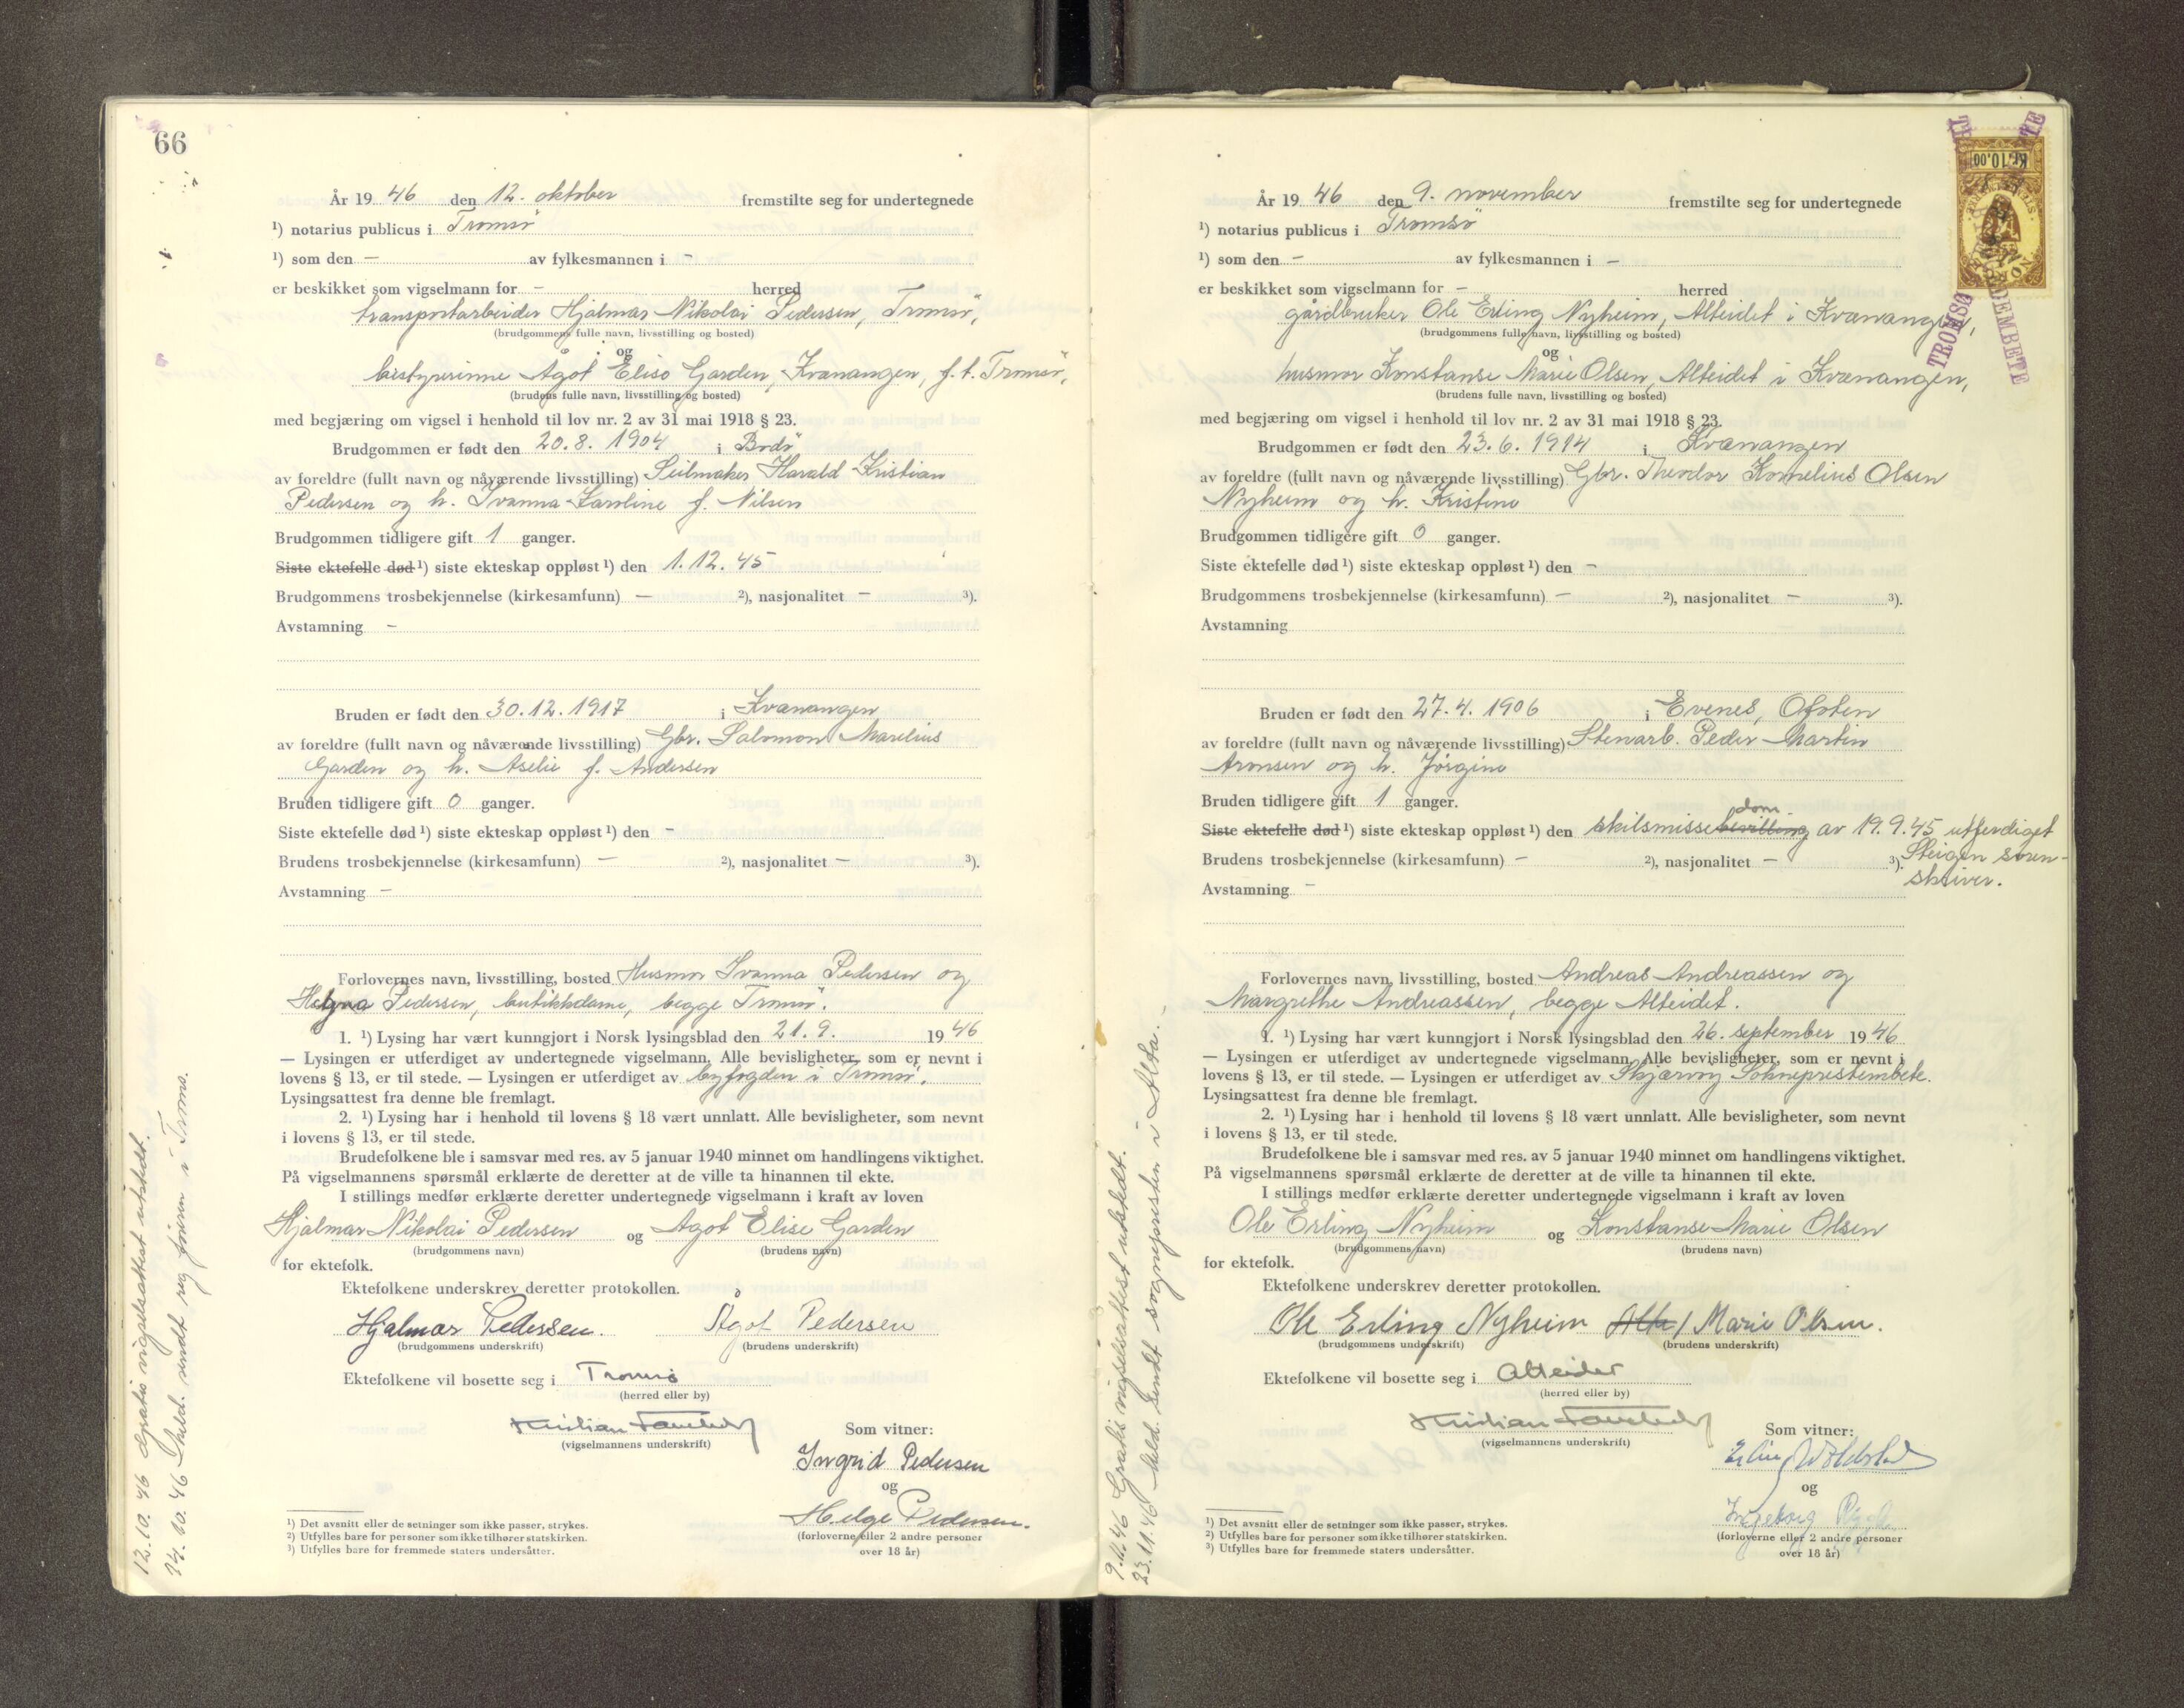 66
År 19 46 den 12. oktober fremstilte seg for undertegnede
¹) notarius publicus i Tromsö
¹) som den – av fylkesmannen i –
er beskikket som vigselmann for – herred
transportarbeider Hjalmar Nikolai Pedersen, Tromsö,
(brudgommens fulle navn, livsstilling og bosted)
og
bestyrerinne Ågot Elise Garden, Kvænangen, f.t. Tromsö,
(brudens fulle navn, livsstilling og bosted)
med begjæring om vigsel i henhold til lov nr. 2 av 31 mai 1918 § 23.
Brudgommen er født den 20.8. 1904 i Bodö
av foreldre (fullt navn og nåværende livsstilling) Seilmaker Harald Kristian
Pedersen og h. Ivanna Karoline f. Nilsen
Brudgommen tidligere gift 1 ganger.
Siste ektefelle død ¹) siste ekteskap oppløst ¹) den 1.12.45
Brudgommens trosbekjennelse (kirkesamfunn) – ²), nasjonalitet – ³).
Avstamning –
Bruden er født den 30.12.1917 i Kvænangen
av foreldre (fullt navn og nåværende livsstilling) Gbr. Salomon Marelius
Garden og h. Aselie f. Andersen
Bruden tidligere gift 0 ganger.
Siste ektefelle død ¹) siste ekteskap oppløst ¹) den –
Brudens trosbekjennelse (kirkesamfunn) – ²), nasjonalitet – ³).
Avstamning –
Forlovernes navn, livsstilling, bosted Husmor Ivanna Pedersen og
Pedersen, butikkdame, begge Tromsö.
1. ¹) Lysing har vært kunngjort i Norsk lysingsblad den 21.9. 19 46
— Lysingen er utferdiget av undertegnede vigselmann. Alle bevisligheter, som er nevnt i
lovens § 13, er til stede. — Lysingen er utferdiget av byfogden i Tromsö.
Lysingsattest fra denne ble fremlagt.
2. ¹) Lysing har i henhold til lovens § 18 vært unnlatt. Alle bevisligheter, som nevnt
i lovens § 13, er til stede.
Brudefolkene ble i samsvar med res. av 5 januar 1940 minnet om handlingens viktighet.
På vigselmannens spørsmål erklærte de deretter at de ville ta hinannen til ekte.
I stillings medfør erklærte deretter undertegnede vigselmann i kraft av loven
Hjalmar Nikolai Pedersen og Ågot Elise Garden
(brudgommens navn) (brudens navn)
for ektefolk.
Ektefolkene underskrev deretter protokollen.
Hjalmar Pedersen. Ågot Pedersen
(brudgommens underskrift) (brudens underskrift)
Ektefolkene vil bosette seg i Tromsø
(herred eller by)
Kristian
(vigselmannens underskrift)
Som vitner:
Ingrid Pedersen
og
Helge Pedersen.
(forloverne eller 2 andre personer
over 18 år)
¹) Det avsnitt eller de setninger som ikke passer, strykes.
²) Utfylles bare for personer som ikke tilhører statskirken.
³) Utfylles bare for fremmede staters undersåtter.
12.10.46 Gratis vigselsattest utstedt.
Meld. sendt i Troms.
År 19 46 den 9. november fremstilte seg for undertegnede
¹) notarius publicus i Tromsö
¹) som den – av fylkesmannen i –
er beskikket som vigselmann for – herred
gårdbruker Ole Erling Nyheim, Alteidet i Kvænangen,
(brudgommens fulle navn, livsstilling og bosted)
og
husmor Konstanse Marie Olsen, Alteidet i Kvænangen,
(brudens fulle navn, livsstilling og bosted)
med begjæring om vigsel i henhold til lov nr. 2 av 31 mai 1918 § 23.
Brudgommen er født den 23.6.1914 i Kvænangen
av foreldre (fullt navn og nåværende livsstilling) Gbr. Theodor Kornelius Olsen
Nyheim og h. Kristine
Brudgommen tidligere gift 0 ganger.
Siste ektefelle død ¹) siste ekteskap oppløst ¹) den –
Brudgommens trosbekjennelse (kirkesamfunn) – ²), nasjonalitet – ³).
Avstamning
Bruden er født den 27.4.1906 i Evenes, Ofoten
av foreldre (fullt navn og nåværende livsstilling) Stenarb. Peder Martin
Aronsen og h. Jörgine
Bruden tidligere gift 1 ganger.
dom
Siste ektefelle død ¹) siste ekteskap oppløst ¹) den skilsmissebevilling av 19.9.45 utferdiget
Brudens trosbekjennelse (kirkesamfunn) – ²), nasjonalitet – ³). Steigen soren-
Avstamning – skriver.
Forlovernes navn, livsstilling, bosted Andreas Andreassen og
Margrethe Andreassen, begge Alteidet.
1. ¹) Lysing har vært kunngjort i Norsk lysingsblad den 26. september 19 46
— Lysingen er utferdiget av undertegnede vigselmann. Alle bevisligheter, som er nevnt i
lovens § 13, er til stede. — Lysingen er utferdiget av Skjervøy Sokneprestembete.
Lysingsattest fra denne ble fremlagt.
2. ¹) Lysing har i henhold til lovens § 18 vært unnlatt. Alle bevisligheter, som nevnt
i lovens § 13, er til stede.
Brudefolkene ble i samsvar med res. av 5 januar 1940 minnet om handlingens viktighet.
På vigselmannens spørsmål erklærte de deretter at de ville ta hinannen til ekte.
I stillings medfør erklærte deretter undertegnede vigselmann i kraft av loven
Ole Erling Nyheim og Konstanse Marie Olsen
(brudgommens navn) (brudens navn)
for ektefolk.
Ektefolkene underskrev deretter protokollen.
Ole Erling Nyheim Marie Olsen.
(brudgommens underskrift) (brudens underskrift)
Ektefolkene vil bosette seg i Alteidet
(herred eller by)
Kristian
(vigselmannens underskrift)
Som vitner:
og
Ingeborg
(forloverne eller 2 andre personer
over 18 år)
¹) Det avsnitt eller de setninger som ikke passer, strykes.
²) Utfylles bare for personer som ikke tilhører statskirken.
³) Utfylles bare for fremmede staters undersåtter.
9.11.46 Gratis vigselsattest utstedt.
23.11.46 Meld. sendt sognepresten i Alta.
Kr. 10.00
TROMSØ